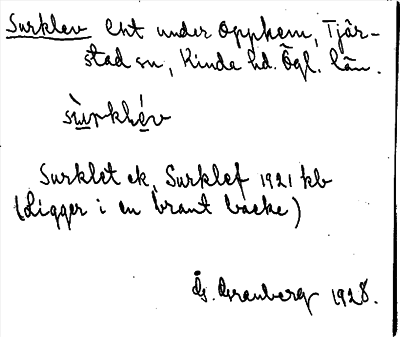 Surklev lht under Opphem, Tjär-
stad sn, Kinda hd. Ögl. län.
su̱rkle̱v
Surklet ek, Surklef 1921 kb
(Ligger i en brant backe)
G. Granberg 1928.